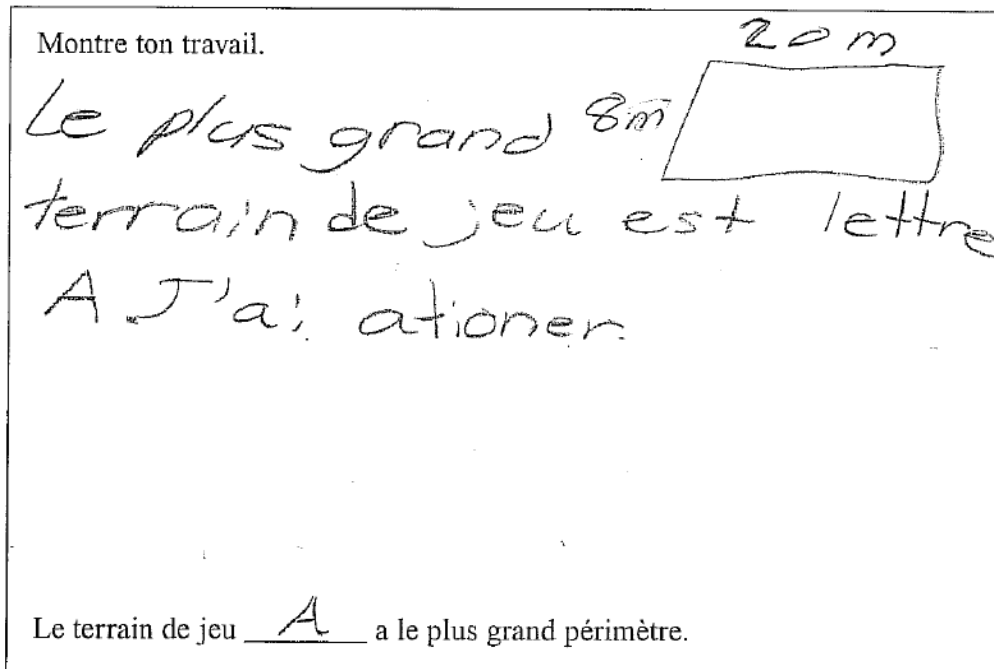 Montre ton travail.
20 m
Le plus grand 8m
terrain de jeu est lettre
A. J'ai ationer.
Le terrain de jeu A a le plus grand périmètre.